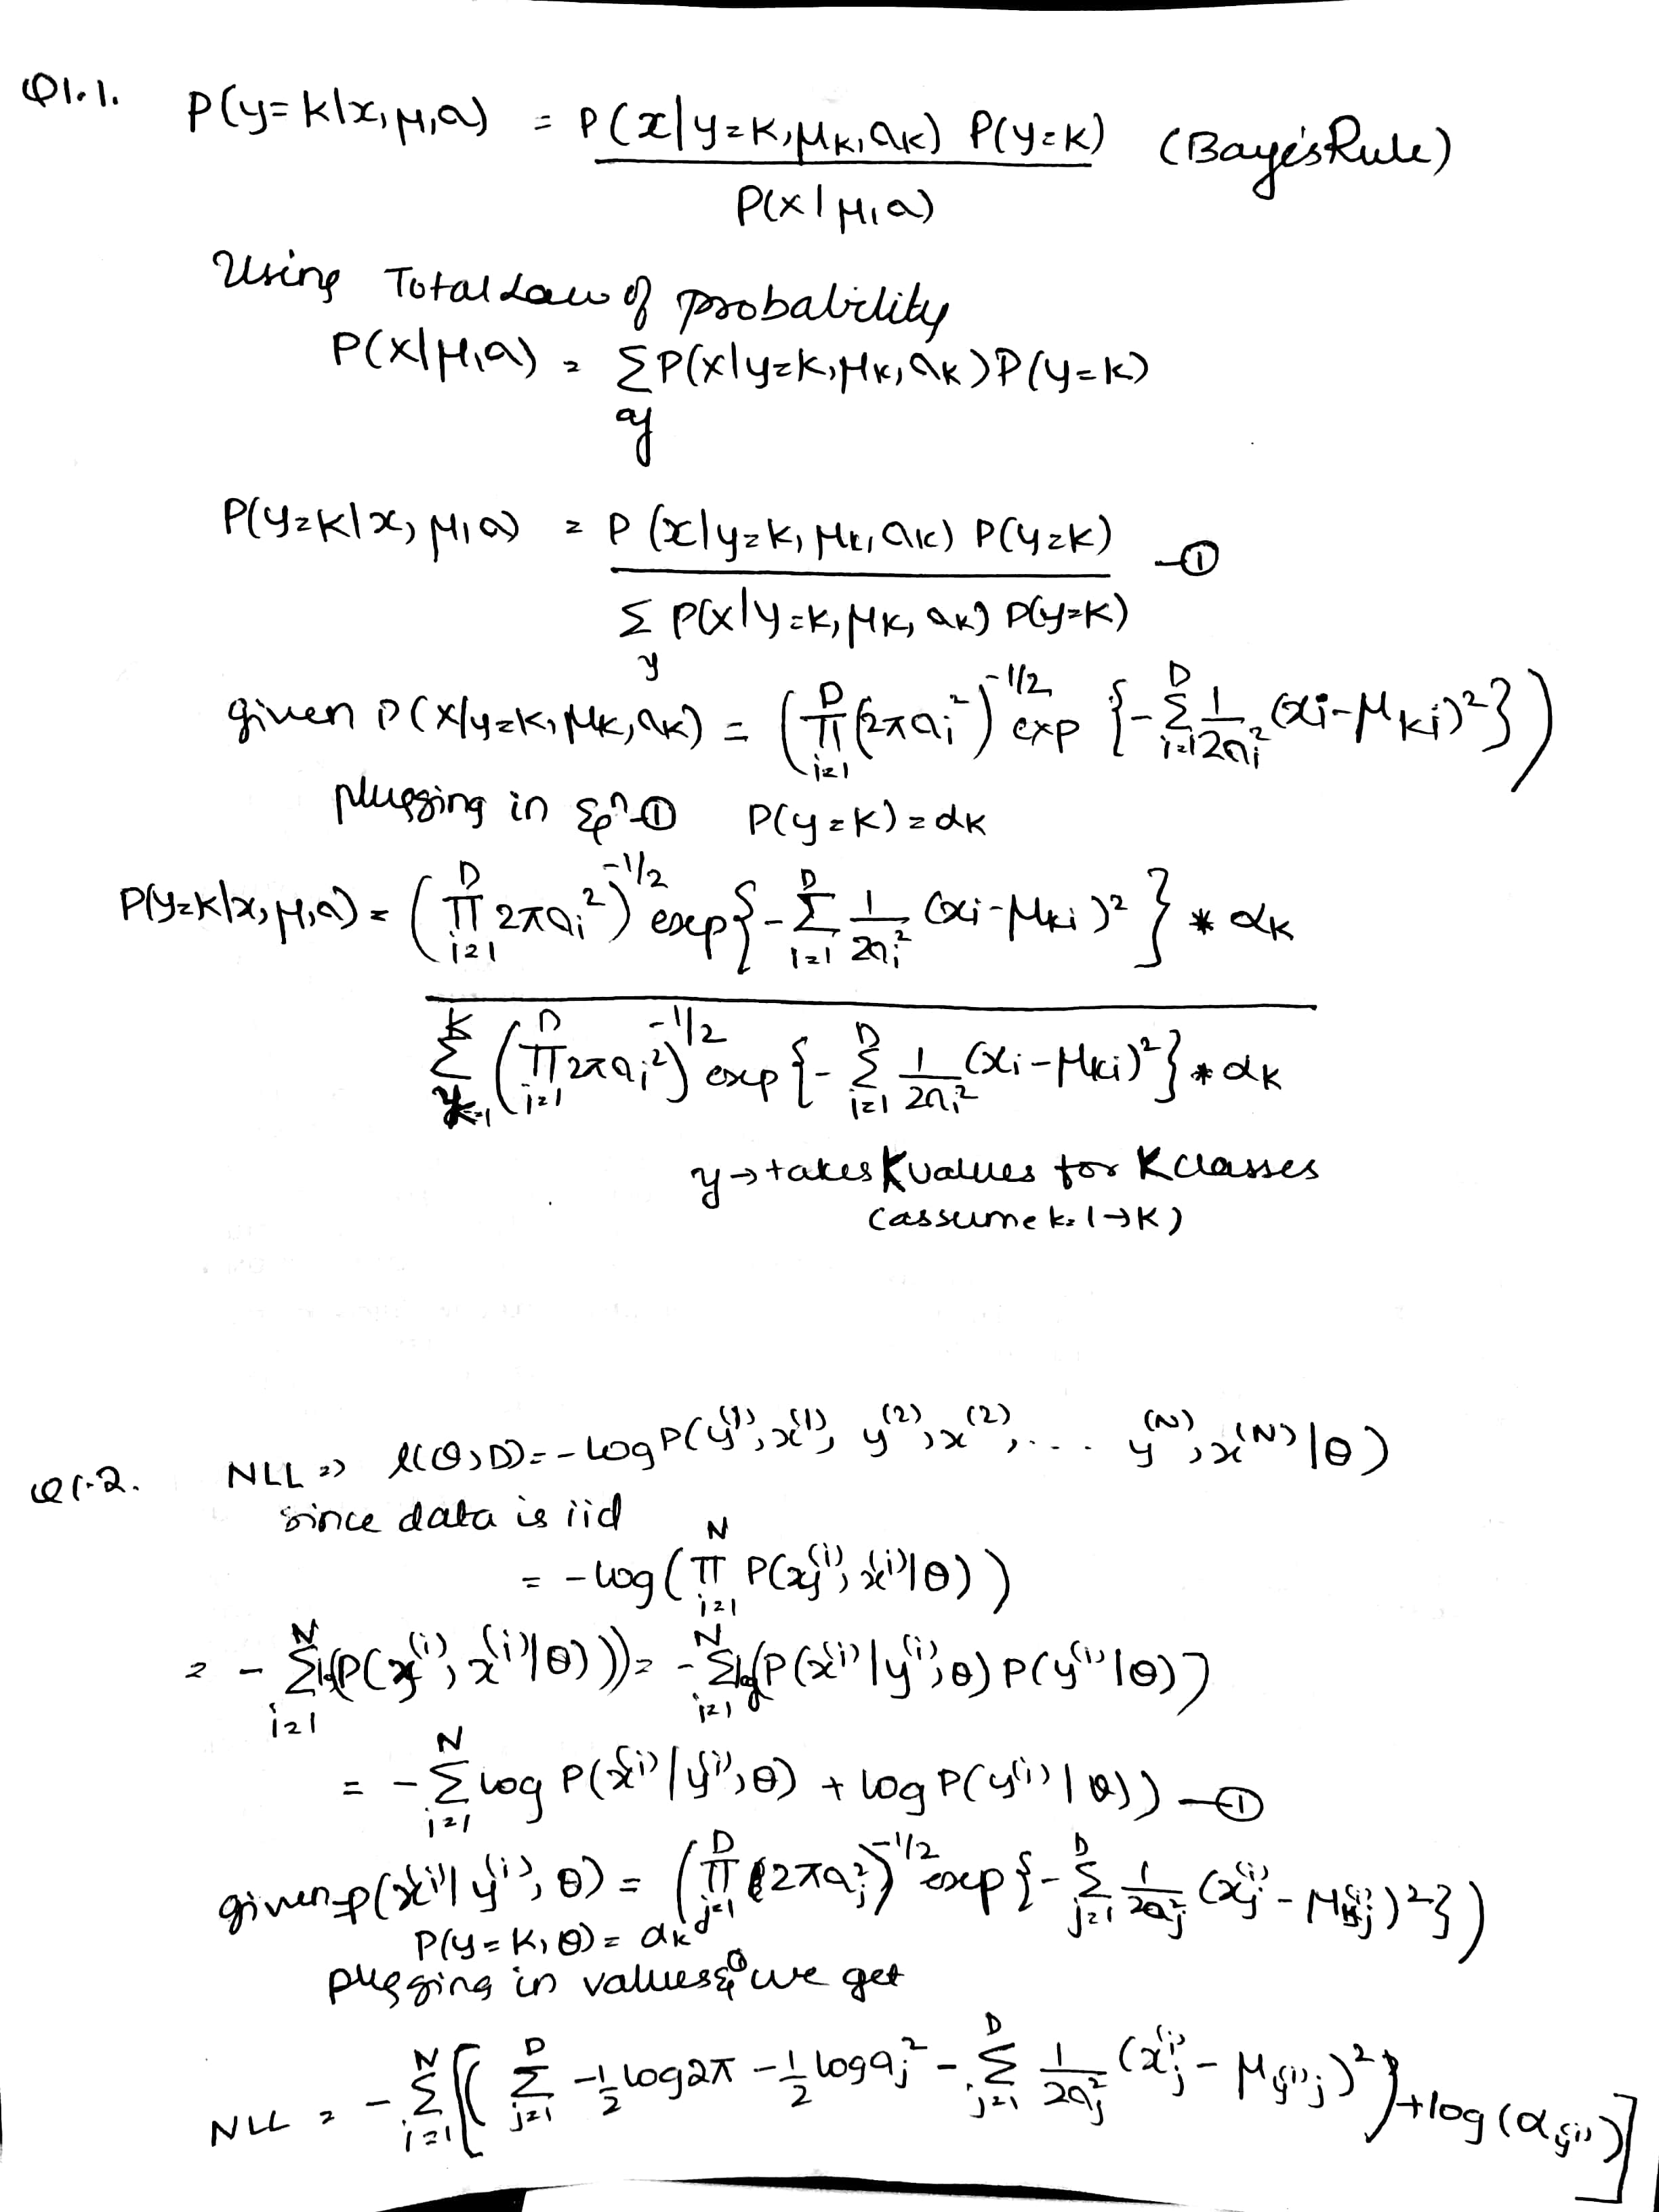 Q1.1. P(y=k|x,μ,a) = P(x|y=k,μk,ak) P(y=k) (Baye's Rule)
P(x|μ,a)
Using Total Law of probability
P(x|μ,a) = Σ P(x|y=k,μk,ak)P(y=k)
y
P(y=k|x,μ,a) = P(x|y=k,μk,ak) P(y=k) —①
Σ P(x|y=k,μk,ak) P(y=k)
y
given P(x|y=k,μk,ak) = (∏_{i=1}^{D} (2πa_i^2)^{-1/2} exp {-Σ_{i=1}^{D} 1/2a_i^2 (xi-μki)^2})
plugging in Eqn-① P(y=k)=αk
P(y=k|x,μ,a) = (∏_{i=1}^{D} 2πa_i^2)^{-1/2} exp{-Σ_{i=1}^{D} 1/2a_i^2 (xi-μki)^2} * αk
Σ_{k=1}^{K} (∏_{i=1}^{D} 2πa_i^2)^{-1/2} exp{-Σ_{i=1}^{D} 1/2a_i^2 (xi-μki)^2} * αk
y→takes K values for K classes
(assume k=1→K)
Q1.2. NLL => l(θ,D)= -log P(y^{(1)},x^{(1)}, y^{(2)},x^{(2)},.... y^{(N)},x^{(N)}|θ)
since data is iid
= -log(∏_{i=1}^{N} P(y^{(i)},x^{(i)}|θ))
= -Σ_{i=1}^{N} log(P(y^{(i)},x^{(i)}|θ))) = -Σ_{i=1}^{N} log(P(x^{(i)}|y^{(i)},θ) P(y^{(i)}|θ))
= -Σ_{i=1}^{N} log P(x^{(i)}|y^{(i)},θ) + log P(y^{(i)}|θ)) —①
given p(x^{(i)}|y^{(i)},θ) = (∏_{j=1}^{D} (2πa_j^2)^{-1/2} exp{-Σ_{j=1}^{D} 1/2a_j^2 (x_j^{(i)}-μ_{y^{(i)}j})^2})
P(y=k,θ)= αk
plugging in values in ① we get
NLL = -Σ_{i=1}^{N} [(Σ_{j=1}^{D} -1/2 log2π -1/2 log a_j^2 - Σ_{j=1}^{D} 1/2a_j^2 (x_j^{(i)}-μ_{y^{(i)}j})^2) + log(α_{y^{(i)}})]